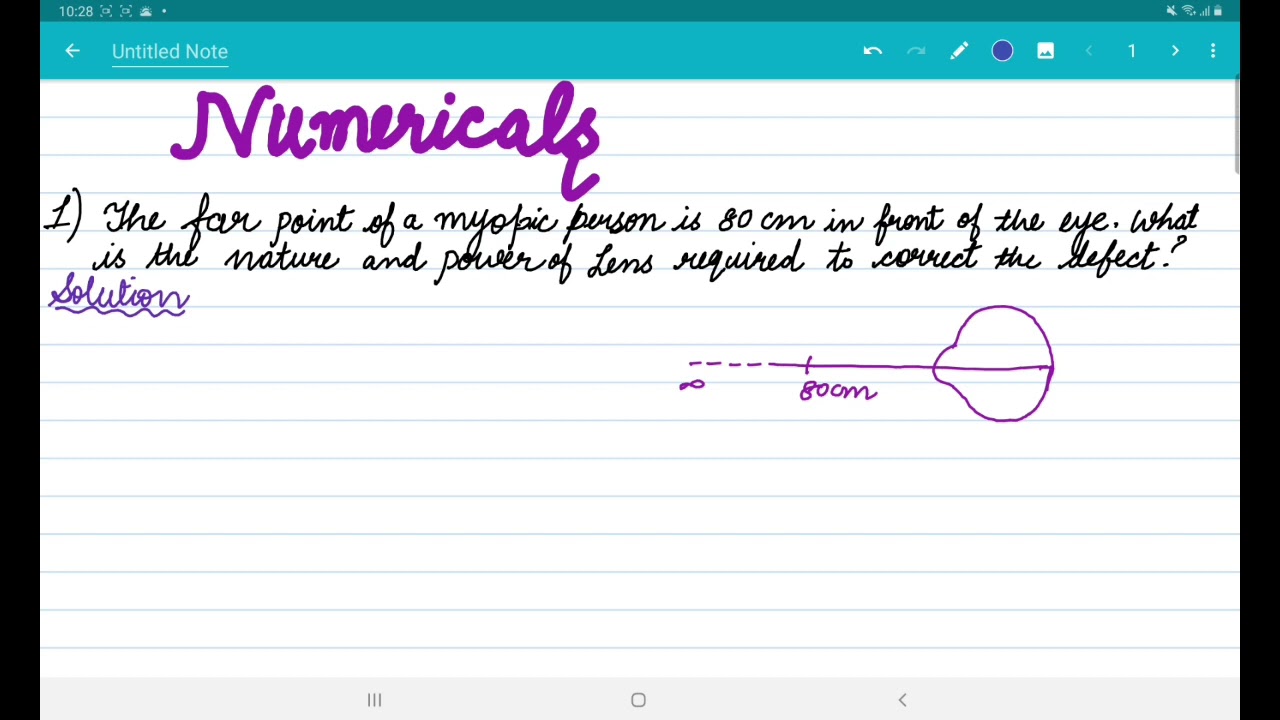 10:28
Untitled Note
1
Numericals
1) The far point of a myopic person is 80 cm in front of the eye. What
is the nature and power of Lens required to correct the defect?
Solution
∞ 80cm